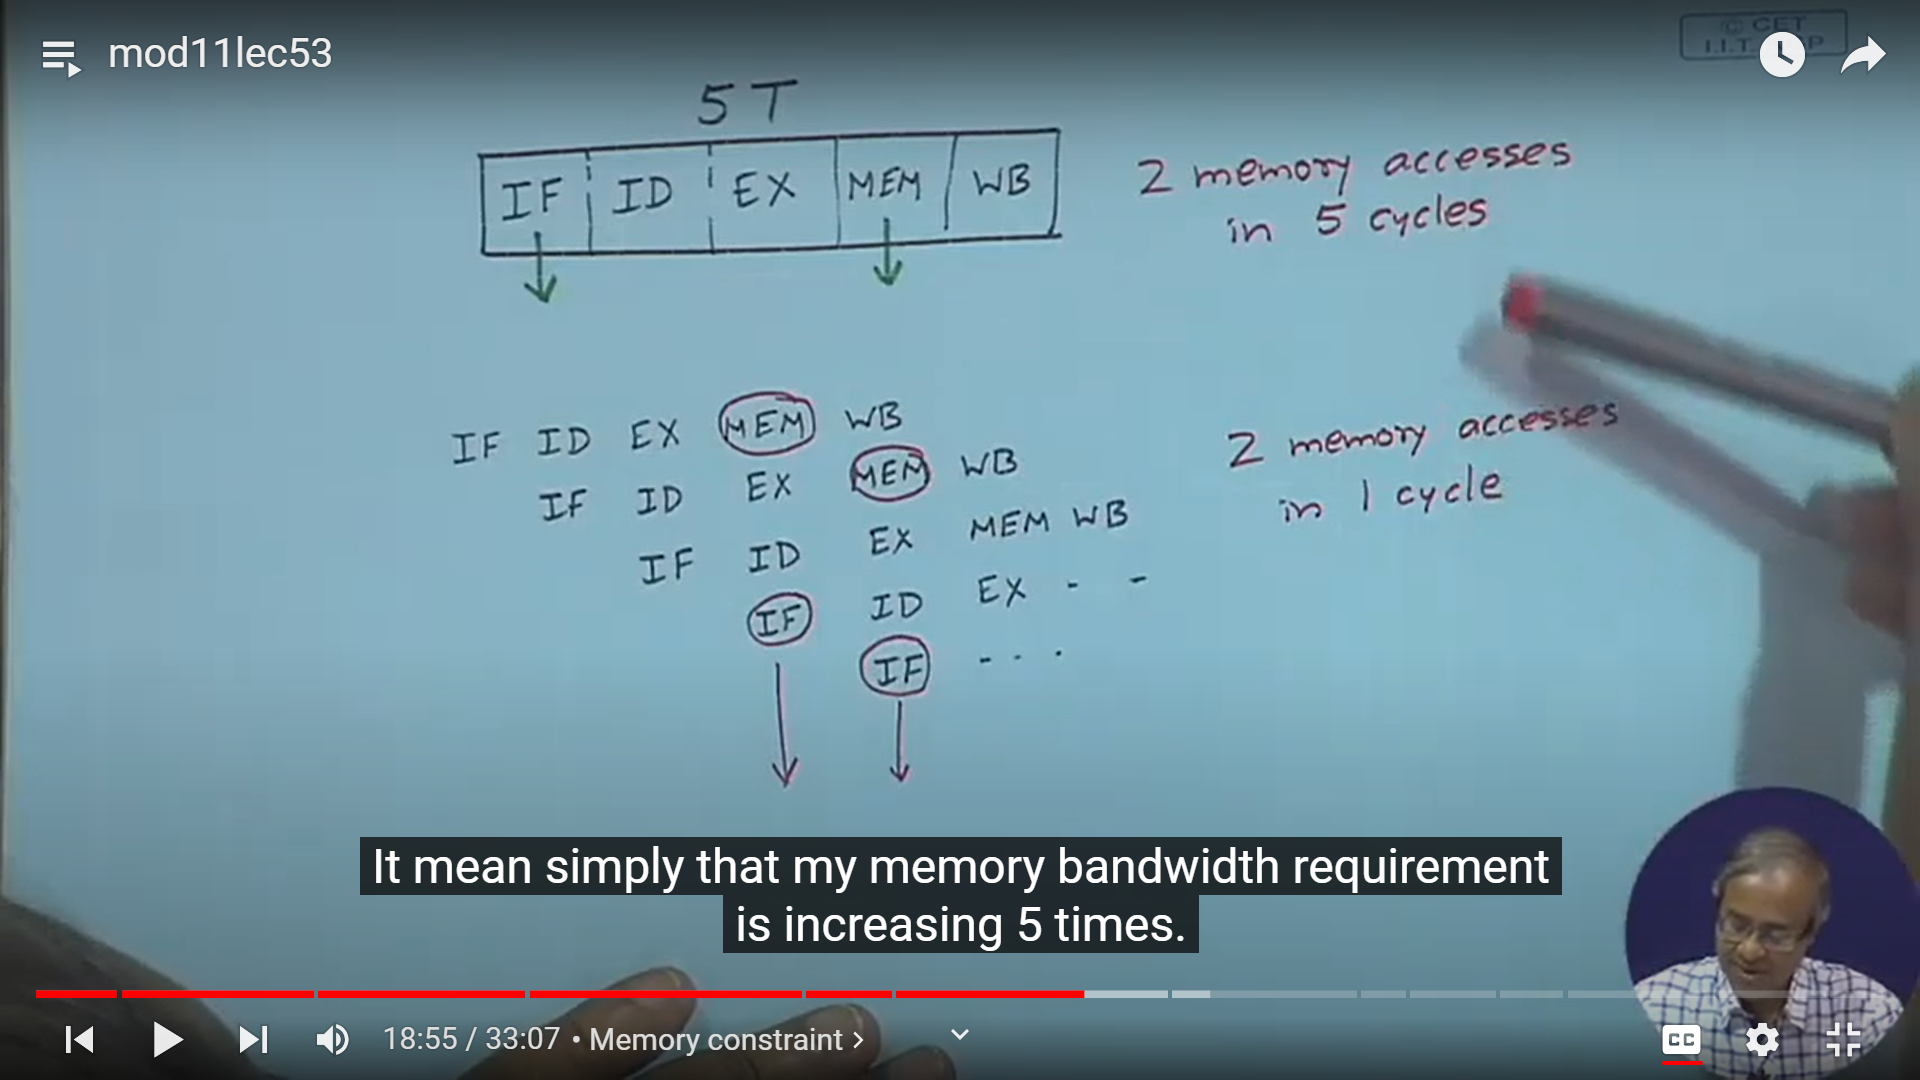 mod11lec53
© CET
I.I.T.
5T
IF ID EX MEM WB
2 memory accesses
in 5 cycles
IF ID EX MEM WB
IF ID EX MEM WB
IF ID EX MEM WB
IF ID EX - -
IF - - -
2 memory accesses
in 1 cycle
It mean simply that my memory bandwidth requirement
is increasing 5 times.
18:55 / 33:07 • Memory constraint >
CC